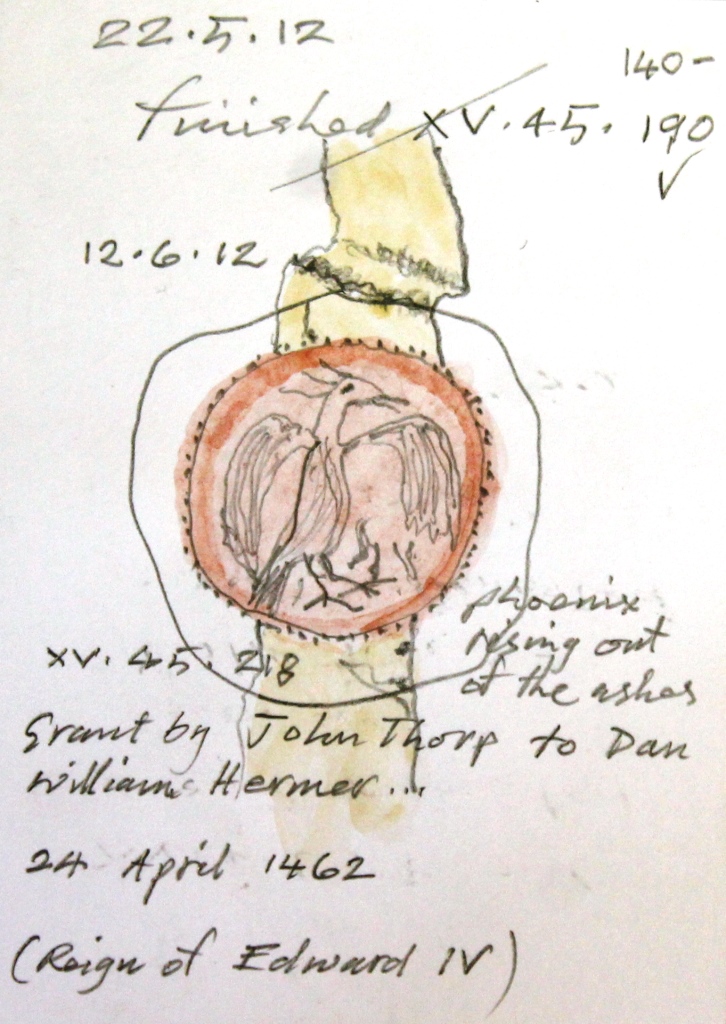 22.5.12
140-
finished XV.45.190
12.6.12
phoenix
rising out
of the ashes
XV.45.218
Grant by John Thorp to Dan
William Hermer...
24 April 1462
(Reign of Edward IV)